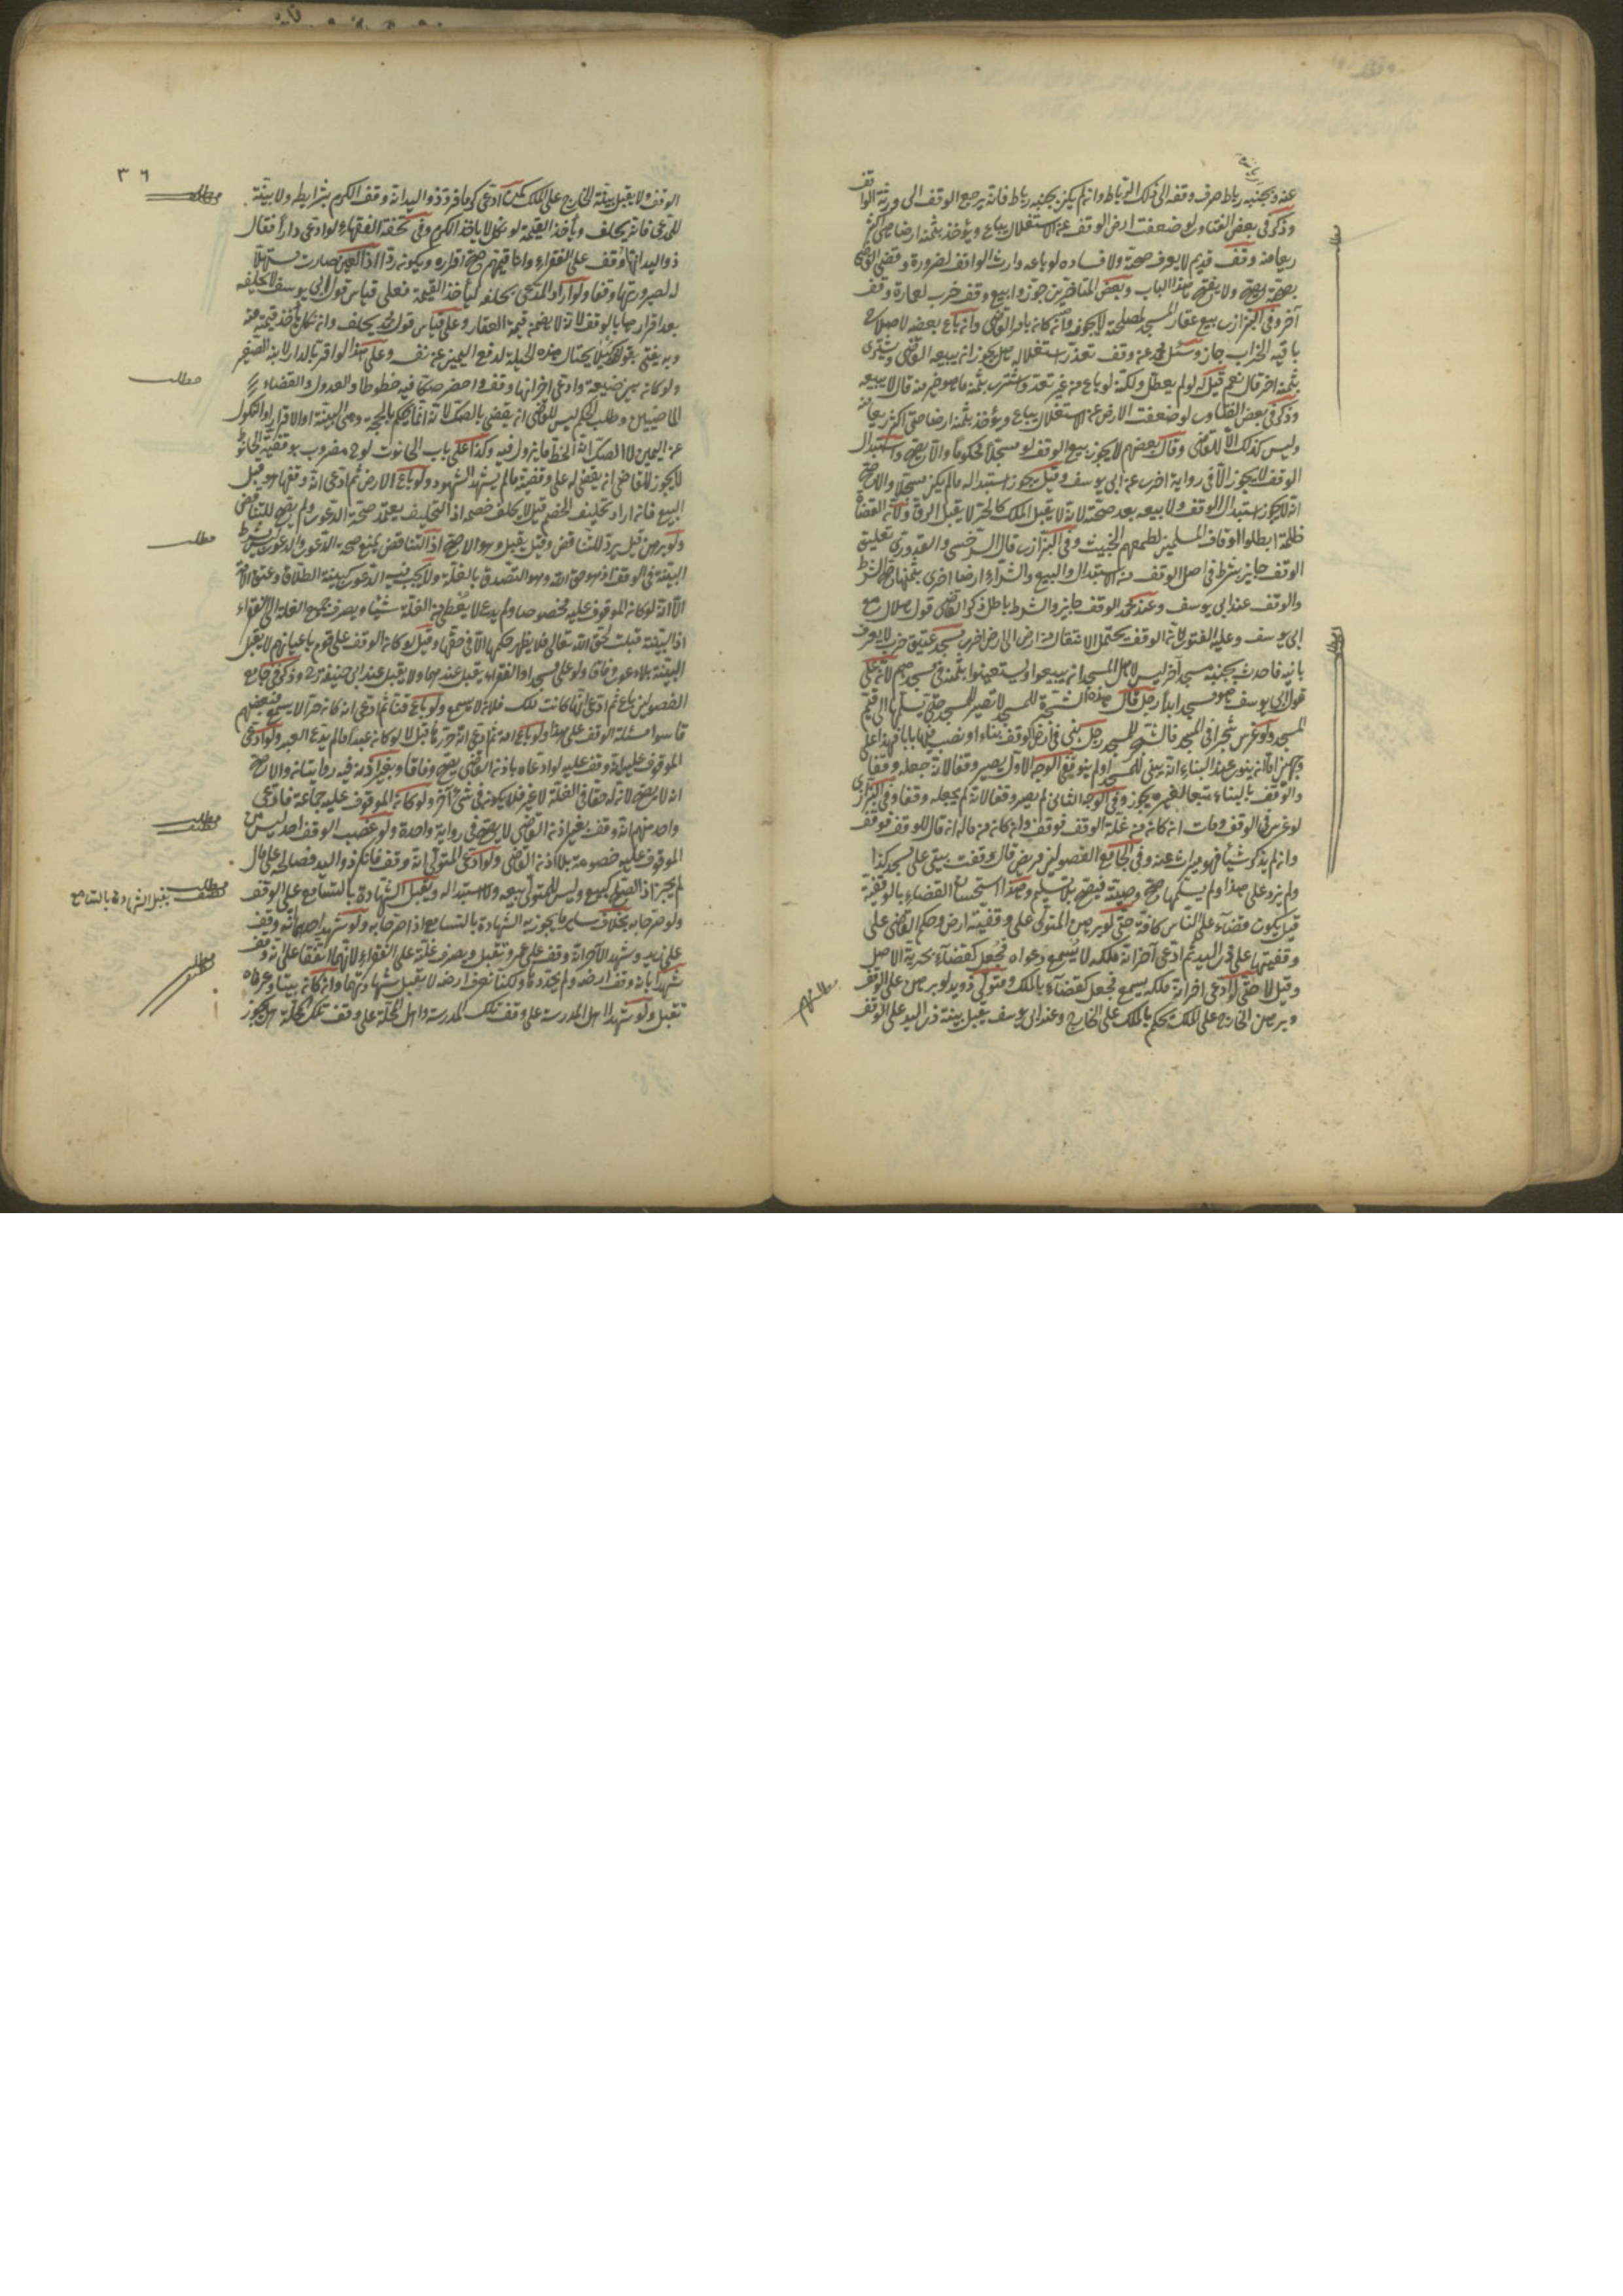 عنه وبجنبه رباط صرف وقفه الى ذلك الرباط وان لم يكن بجنبه رباط فانه يرجع الوقف الى ورثة الواقف
وذكر فى بعض الفتاوى لو ضعفت ارض الوقف عن الاستغلال يباع ويؤخذ بثمنه ارضا هى اكثر
ريعا منه وقف قديم لا يعرف صحته ولا فساده لو باعه وارث الواقف لضرورة وقضى القاضى
بصحته يصح ولا يفتح هذا الباب وبعض المتأخرين جوزوا بيع وقف خرب لعمارة وقف
آخر وفى البزازى بيع عقار المسجد لمصلحة لا يجوز وان كان بامر القاضى وان باع بعضه لاصلاح
باقيه الخراب جاز وسئل محمد عن وقف تعذر استغلاله هل يجوز ان يبيعه القاضى ويشترى
بثمنه اخر قال نعم قيل له لو لم يتعطل ولكنه لو باع من غير تعد واشترى بثمنه ما هو خير منه قال لا يبيعه
وذكر فى بعض الفتاوى لو ضعفت الارض عن الاستغلال يباع ويؤخذ بثمنه ارضا هى اكثر ريعا منه
وليس كذلك الا للقاضى وقال بعضهم لا يجوز بيع الوقف لو مسجلا محكوما والا يصح واستبدال
الوقف لا يجوز الا فى رواية اخرى عن ابى يوسف وقيل يجوز استبداله ما لم يكن مسجلا والاصح
انه لا يجوز استبدال الوقف ولا بيعه بعد صحته لانه لا يقبل الملك كالحر لا يقبل الرق ولان القضاة
ظلمة ابطلوا اوقاف المسلمين لطمعهم الخبيث وفى البزازى قال السرخسى والقدورى تعليق
الوقف جايز بشرط فى اصل الوقف منه الاستبدال والبيع والشراء ارضا اخرى بثمنها صح الشرط
والوقف عند ابى يوسف وعند محمد الوقف جايز والشرط باطل ذكر القاضى قول هلال مع
ابى يوسف وعليه الفتوى لان الوقف يحتمل الانتقال من ارض الى ارض اخرى مسجد عتيق خرب لا يعرف
بانيه فاحدث بجنبه مسجد آخر ليس لاهل المسجد ان يبيعوا ويستعينوا بثمنه فى مسجدهم لانه على
قول ابى يوسف هو مسجد ابدا رجل قال هذه الشجرة للمسجد لا تصير للمسجد حتى يسلمها الى قيم
المسجد ولو غرس شجرا فى المسجد فالشجر للمسجد رجل بنى فى ارض الوقف بناء او نصب فيها بابا فهذا على
وجهين اما ان ينوى عند البناء انه يبنى للمسجد او لم ينو ففى الوجه الاول يصير وقفا لانه جعله وقفا
والوقف بالبناء تبعا لغيره يجوز وفى الوجه الثانى لم يصر وقفا لانه لم يجعله وقفا وفى البزازى
لو غرس فى الوقف ومات ان كان من غلة الوقف فوقف وان كان من ماله ان قال للوقف فوقف
وان لم يذكر شيأ فهو ميراث عنه وفى الجامع الفصولين مريض قال وقفت بيتى على مسجد كذا
ولم يزد على هذا ولم يسلمها صح وصيته فيصح بلا تسليم وهذا استحسان القضاء بالوقفية
قيل يكون قضاء على الناس كافة حتى لو برهن المتولى على وقفية ارض وحكم القاضى على
وقفيتها على ذى اليد ثم ادعى آخر انه ملكه لا يسمع دعواه فجعل كقضاء بحرية الاصل
وقيل لا حتى لو ادعى اخر انه ملكه يسمع فجعل كقضاء بالملك ومتولى ذو يد لو برهن على الوقف
وبرهن الخارج على الملك يحكم بالملك على الخارج وعند ابى يوسف يقبل بينة ذى اليد على الوقف
مطلب
مطلب
مطلب مهم
٣٦
الوقف ولا يقبل بينة الخارج على الملك كمن ادعى كرما فاقر ذو اليد انه وقف الكرم بشرايطه ولا بينة
للمدعى فانه يحلف ويأخذ القيمة لو نكل لا ياخذ الكرم وفى تحفة الفقهاء لو ادعى دارا فقال
ذو اليد انها وقف على الفقراء وانا قيمهم صح اقراره ويكون رد
له لصيرورتها وقفا ولو اراد المدعى يحلفه ليأخذ القيمة فعلى قياس قول ابى يوسف لا يحلفه
بعد اقرارها بالوقف لانه لا يضمن قيمة العقار وعلى قياس قول محمد يحلف وان نكل يأخذ قيمته منه
وبه يفتى بقول محمد لئلا يحتال هذه الحيلة لدفع اليمين عن نفسه وعلى هذا لو اقر بالدار لابنه الصغير
ولو كان بيده ضيعة وادعى اخر انها وقف واحضر صكا فيه خطوط العدول والقضاة
الماضيين وطلب الحكم ليس للقاضى ان يقضى بالصك لانه انما يحكم بالحجة وهى البينة او الاقرار او النكول
عن اليمين لا الصك اذ الخط مما يزور فيه وكذا على باب الحانوت لوح مضروب بوقفية الحانوت
لا يجوز للقاضى ان يقضى له على وقفيته ما لم يشهد الشهود ولو باع الارض ثم ادعى انه وقفها هو قبل
البيع فان اراد تحليف الخصم قيل لا يحلف خصمه اذ التحليف يعتمد صحة الدعوى ولم يصح للتناقض
ولو برهن قيل يرد للتناقض وقيل يقبل وهو الاصح اذ التناقض يمنع صحة الدعوى والدعوى ليس بشرط
البينة فى الوقف اذ هو حق الله وهو التصدق بالغلة ولا يجب فيه الدعوى كبينة الطلاق وعتق الامة
الا انه لو كان الموقوف عليه مخصوصا ولم يدع لا يعطى من الغلة شيئا ويصرف جميع الغلة الى الفقراء
اذ البينة قبلت لحق الله تعالى فلا يظهر حكمها الا فى حقها وقيل لو كان الوقف على قوم باعيانهم لا يقبل
البينة بلا دعوى وفاقا ولو على مسجد او الفقراء يقبل عندهما ولا يقبل عند ابى حنيفة رح وذكر فى جامع
الفصولين باع ثم ادعى انها كانت ملك فلان لا يسمع ولو باع قنا ثم ادعى انه كان حرا لا يسمع فبعضهم
قاسوا مسئلة الوقف على هذا ولو باع امة ثم ادعى انه حررها قبل لا لو كان عبدا ما لم يدع العبد ولو ادعى
الموقوف عليه انه وقف عليه لو ادعاه باذن القاضى يصح وفاقا وبغير اذنه فيه روايتان والاصح
انه لا يصح لانه له حقا فى الغلة لا غير فلا يكون فى شئ آخر ولو كان الموقوف عليه جماعة فادعى
واحد منهم انه وقف بغير اذن القاضى لا يصح فى رواية واحدة ولو غصب الوقف احد ليس من
الموقوف عليه خصومة بلا اذن القاضى ولو ادعى المتولى انه وقف فانكر ذو اليد فصالحه على مال
لم يجز اذ الصلح كبيع وليس للمتولى بيعه ولا استبداله وتقبل الشهادة بالتسامع على الوقف
ولو صرحا به بخلاف ساير ما يجوز به الشهادة بالتسامع اذا صرحا به ولو شهد احدهما انه وقف
على زيد وشهد الآخر انه وقف على عمرو تقبل ويصرف غلته على الفقراء لانهما اتفقا على انه وقف
شهدا بانه وقف ارضه ولم يحددها ولكنا نعرف ارضه لا يقبل شهادتهما وان كان بيتا وعرفاه
تقبل ولو شهد اهل المدرسة على وقف تلك المدرسة واهل المحلة على وقف تلك المحلة
مطلب
مطلب
مطلب
مطلب
مطلب يقبل الشهادة بالتسامع
مطلب